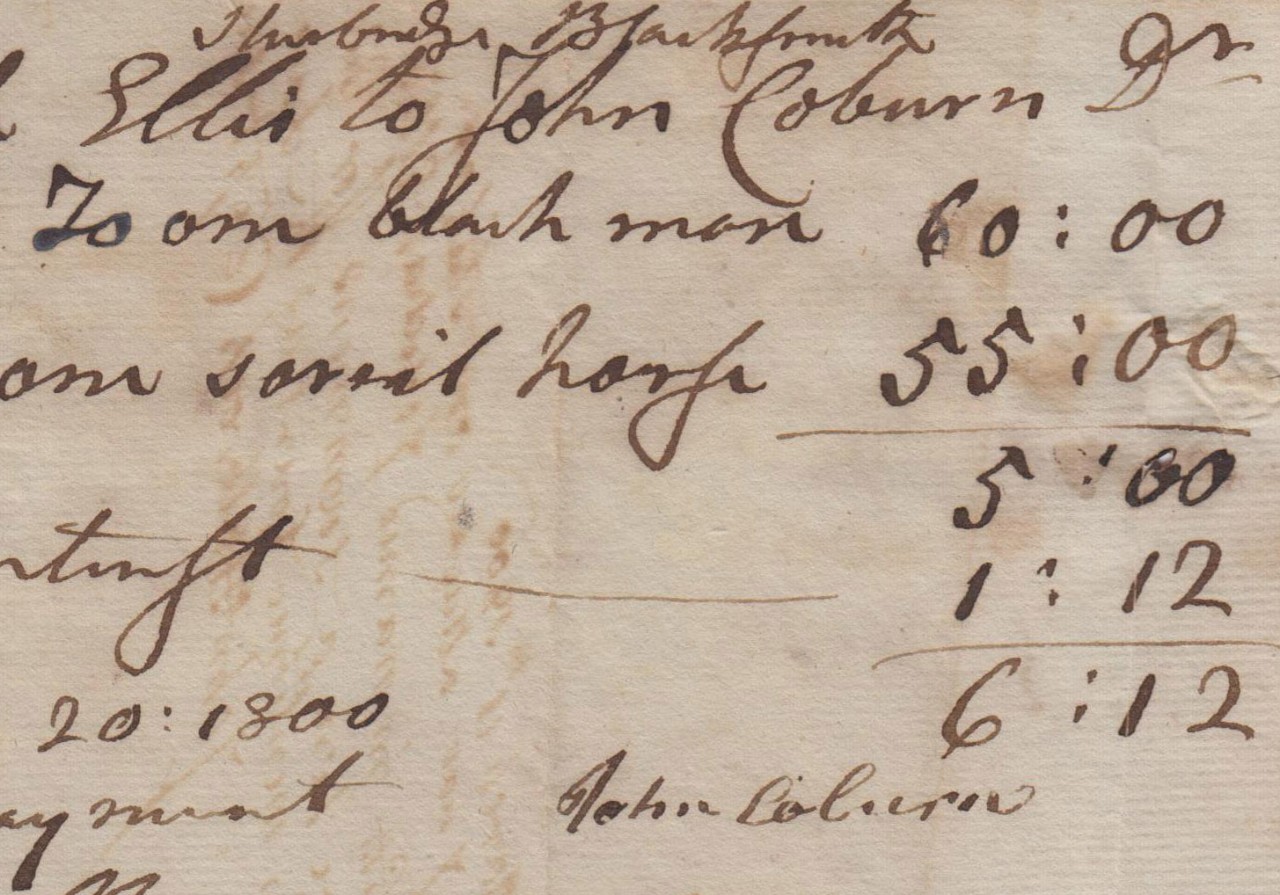 Sturbridge Blacksmith
Ellis to John Coburn Dr
To one black mare 60:00
one sorril horse 55:00
5:00
1:12
20:1800 6:12
John Coburn